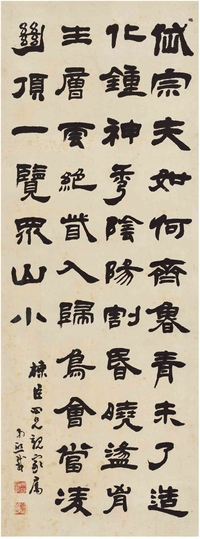 岱宗夫如何齊魯青未了造
化鍾神秀陰陽割昏曉盪胷
生層雲絕眥入歸鳥會當凌
絕頂一覽眾山小
臣四兄親家屬
熙載